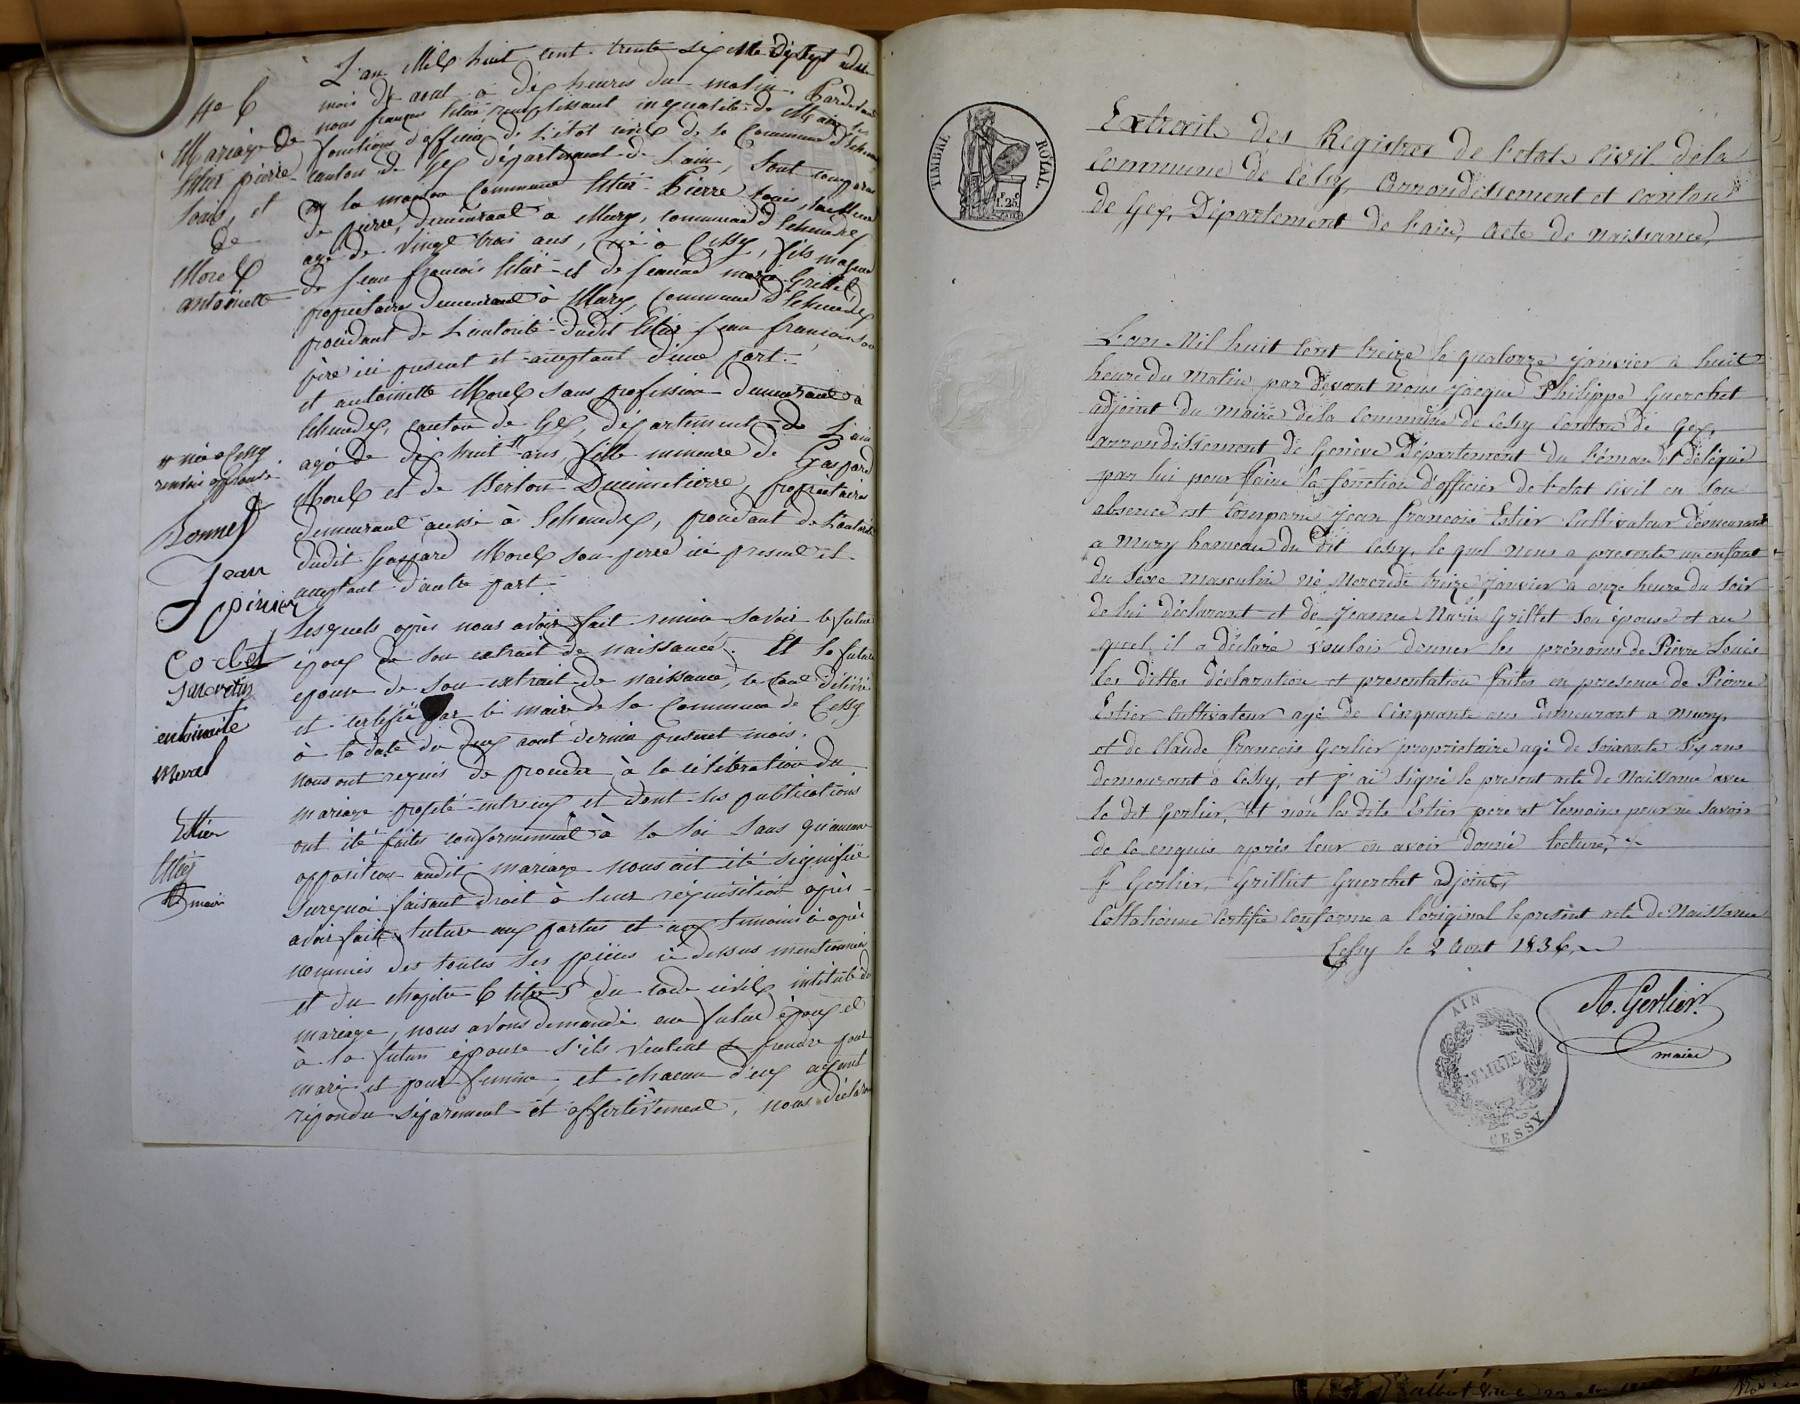 L'an Mil huit cent trente six le dix sept
mois de aout à dix heures du matin. Pardevant
nous françois Estier remplissant in qualité de Maire les
fonctions d'officier de L'état civil de la Commune d'Echenevex
canton de Gex département de L'ain, Sont comparus
à la maison Commune Estier Pierre Louis,
de pierre, demeurant à Mury, commune d'Echenevex
agé de vingt trois ans, né à Cessy, fils majeur
de Jean françois Estier et de jeanne marie Grillet
propriétaires demeurant à Mury, Commune d'Echenevex
procédant de L'autorité dudit Estier Jean françois son
père ici présent et acceptant d'une part.
et antoinette Morel sans profession demeurante à
Echenevex, canton de Gex, département de L'ain
agé de dix huit ans, fille mineure de Gaspard
Morel et de Berton Dimitierre, propriétaires
demeurant aussi à Echenevex, procédant de L'autorité
dudit Gaspard Morel son père ici présent et
acceptant d'autre part.
Lesquels après nous avoir fait remise savoir le futur
époux de son extrait de naissance. Et la future
epouse de son extrait de naissance, le tout délivré
et certifié par le maire de la Commune de Cessy
à la date du deux aout dernier présent mois.
nous ont requis de procéder à la célébration du
mariage projeté entr'eux et dont les publications
ont été faites conformément à la loi sans qu'aucune
opposition audit mariage nous ait été signifiée
Surquoi faisant droit à leur réquisition après
avoir fait lecture aux parties et aux témoins ci après
nommés des toutes les pièces ci dessus mentionnées
et du chapitre 6 titre 5 du code civil intitulé du
mariage, nous avons demandé au futur époux et
à la future épouse s'ils veulent se prendre pour
mari et pour femme, et chacun d'eux ayant
répondu séparement et affirtivement, nous déclarons
No 6
Mariage de
Estier pierre
Louis, et
de
Morel
antoinette
née à Cessy
renvoi approuvé
Bonnet
Jean
pinier
Corbet
entoinaite
Morel
Estier
Estier
maire
TIMBRE ROYAL
1f 25
Extrait des Registres de l'etat civil de la
commune de Cessy, arrondissement et canton
de Gex, Département de l'ain, acte de naissance,
L'an Mil huit cent treize le quatorze janvier a huit
heure du Matin par devant nous Jacque Philippe Guerchet
adjoint du maire de la commune de Cessy canton de Gex,
arrondissement de Genève Département du Léman et délégué
par lui pour faire la fonction d'officier de l'etat civil en son
absence est comparu Jean françois Estier Cultivateur demeurant
a Mury hameau du dit Cessy, le quel nous a presenté un enfant
du sexe masculin né Mercredi treize janvier a onze heure du soir
de lui déclarant et de Jeanne Marie Grillet son épouse et au
quel il a déclaré vouloir donner les prénoms de Pierre Louis
les dittes déclaration et presentation faites en presence de Pierre
Estier cultivateur agé de cinquante ans demeurant a Mury,
et de Claude François Gerlier propriétaire agé de soixante six ans
demeurant a Cessy, et j'ai signé le present acte de Naissance avec
le dit Gerlier, et non les dits Estier père et temoins pour ne savoir
de ce enquis après leur en avoir donné lecture,
f Gerlier, Grilliet Guerchet adjoint,
Collationné certifié conforme a l'original le présent acte de Naissance
Cessy le 2 Aout 1836,
A. Gerlier
maire
AIN
MAIRIE
CESSY